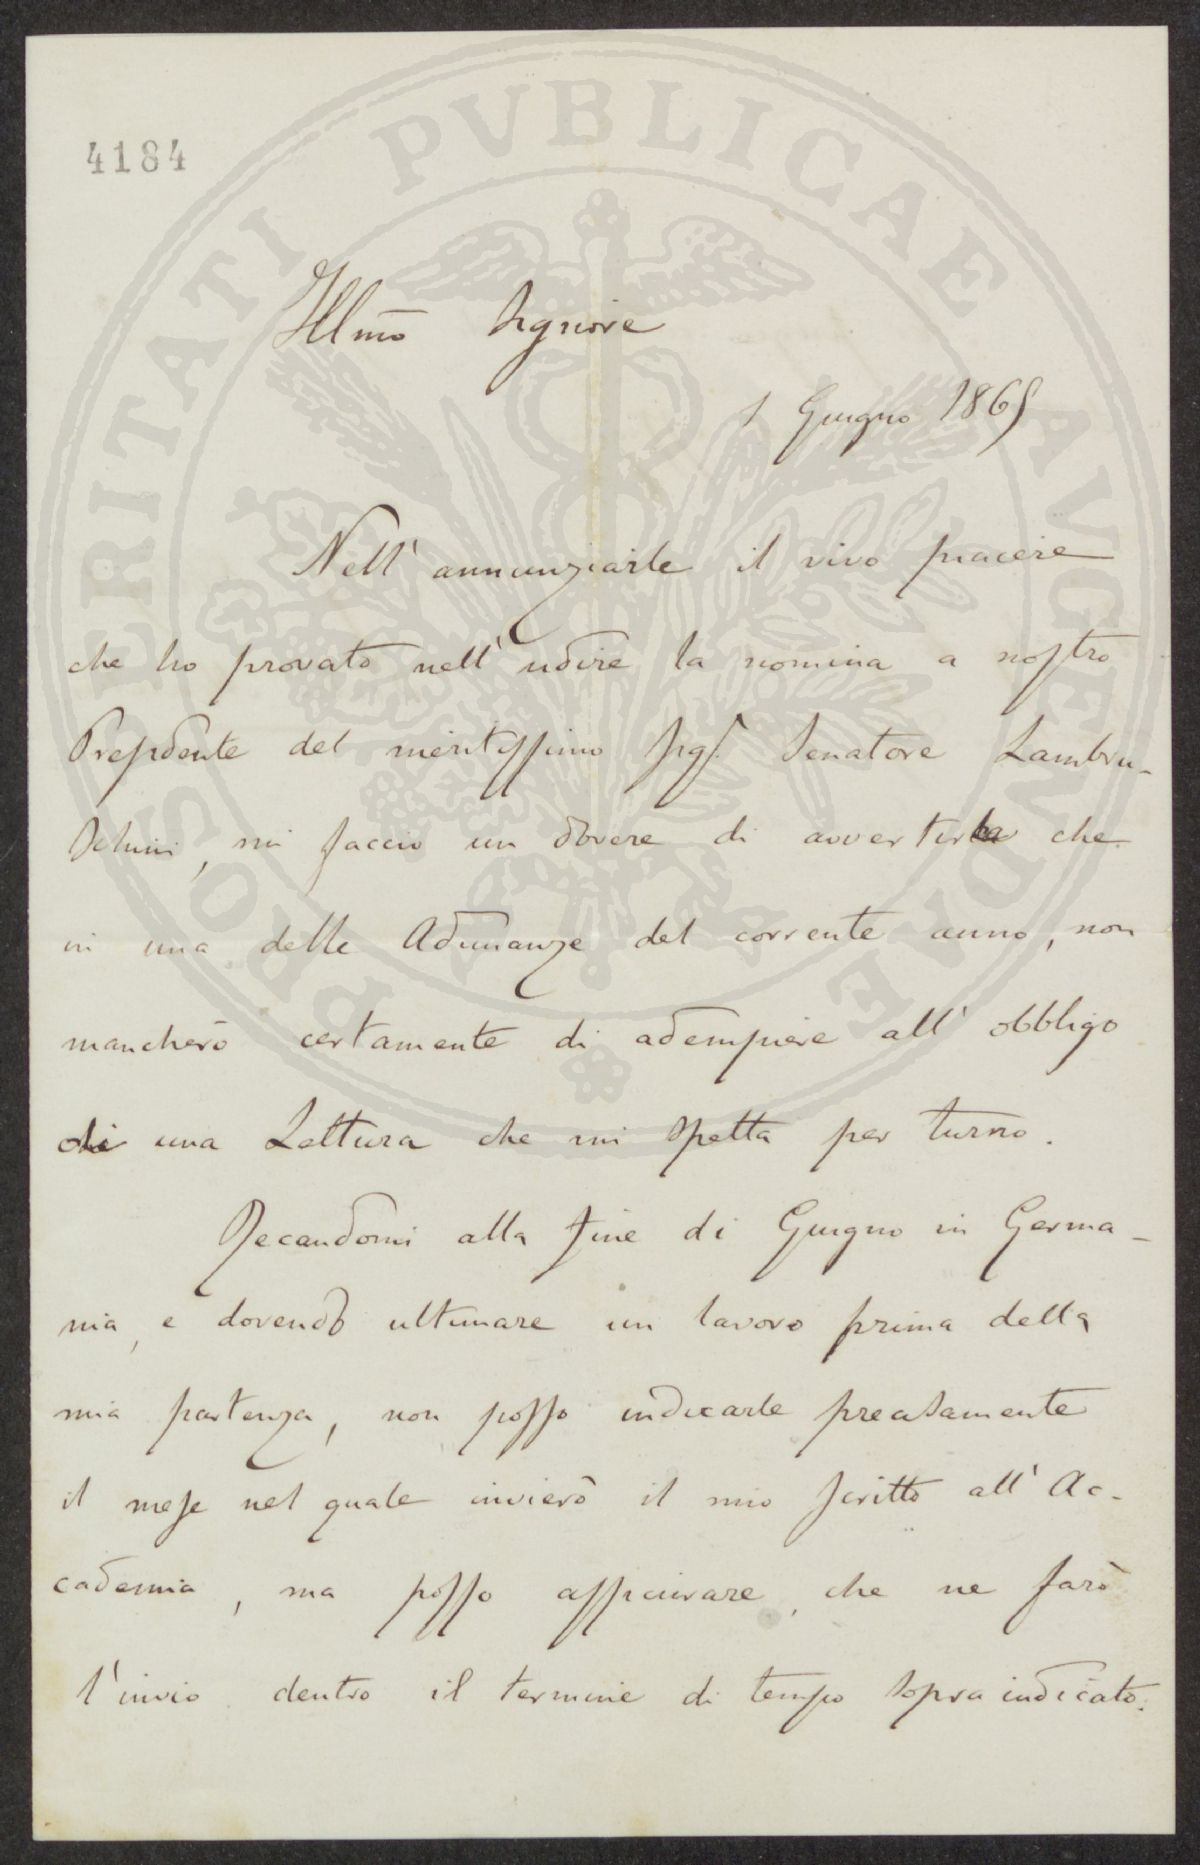 PROSPERITATI PVBLICAE AVGENDAE
4184
Illmo Signore
1 Giugno 1865
Nell' annunziarle il vivo piacere
che ho provato nell' udire la nomina a nostro
Presidente del meritissimo Sigr. Senatore Lambru-
schini, mi faccio un dovere di avvertirla che
in una delle Adunanze del corrente anno, non
mancherò certamente di adempiere all' obbligo
di una Lettura che mi spetta per turno.
Recandomi alla fine di Giugno in Germa-
nia, e dovendo ultimare un lavoro prima della
mia partenza, non posso indicarle precisamente
il mese nel quale invierò il mio scritto all' Ac-
cademia, ma posso assicurare, che ne farò
l'invio dentro il termine di tempo sopraindicato.